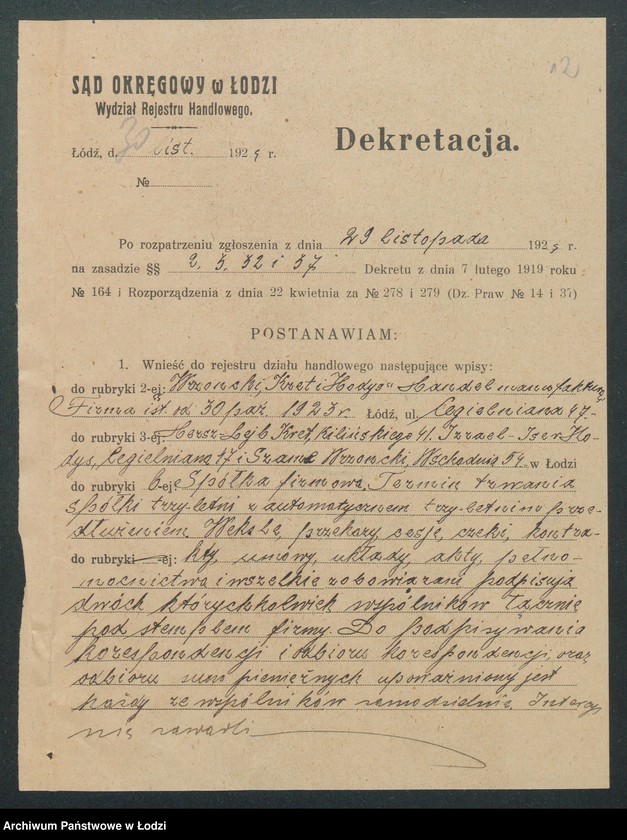 12
SĄD OKRĘGOWY w ŁODZI
Wydział Rejestru Handlowego.
Dekretacja.
Łódź, d. 30 list. 192 r.
№
Po rozpatrzeniu zgłoszenia z dnia 29 listopada 192 r.
na zasadzie §§ 2, 3, 32 i 37 Dekretu z dnia 7 lutego 1919 roku
№ 164 i Rozporządzenia z dnia 22 kwietnia za № 278 i 279 (Dz. Praw № 14 i 37)
POSTANAWIAM:
1. Wnieść do rejestru działu handlowego następujące wpisy:
do rubryki 2-ej: Wrzonski, Kret i Hodys" Handel manufakturą
Firma ist. od 30 paź. 1923 r. Łódź, ul. Cegielniana 47-
do rubryki 3-ej: Hersz-Lejb Kret, Kilińskiego 41. Izrael-Iser Ho-
dys, Cegielniana 17 i Wschodnia 54. w Łodzi
do rubryki 6-ej: Spółka firmowa. Termin trwania
spółki trzyletni z automatycznem trzy-letniem prze-
dłużeniem. Weksle, przekazy, cesje, czeki, kontra-
do rubryki -ej: kty, umowy, układy, akty, pełno-
mocnictwa i wszelkie zobowiązani podpisują
dwóch którychkolwiek wspólników łącznie
pod stemplem firmy. Do podpisywania
korespondencji i odbioru korespondencji, oraz
odbioru sum pieniężnych upoważniony jest
każdy ze wspólników samodzielnie. Intercyz
nie zawarli
Archiwum Państwowe w Łodzi